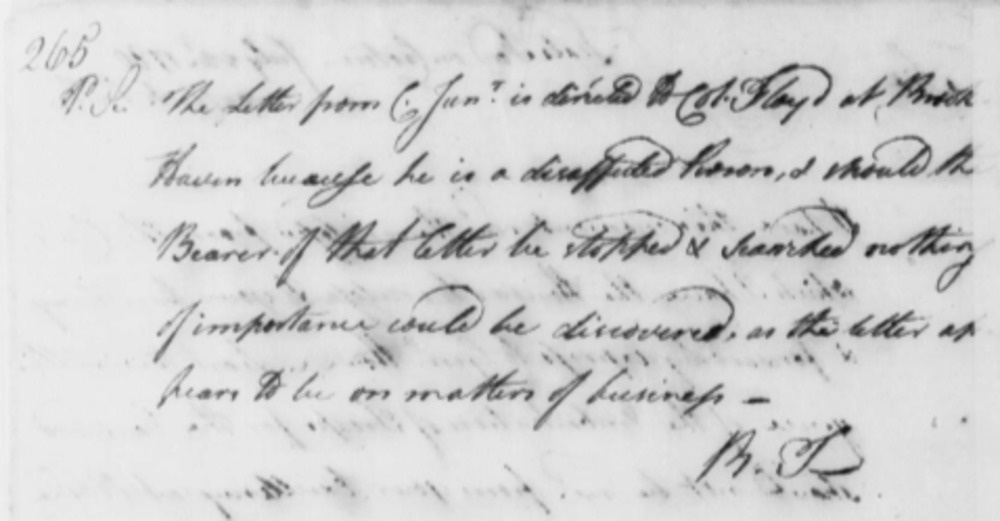 265
P.S. The Letter from C. Junr. is directed to Col. Floyd at Brook
Haven because he is a disaffected Person, & should the
Bearer of that letter be stopped & searched nothing
of importance could be discovered, as the letter ap
pears to be on matters of business —
B. T